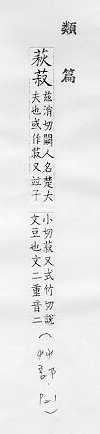 類篇
萩菽茲消切闕人名楚大夫也或作菽又竝子小切菽又式竹切說文豆也文二重音二(艸部. P21)